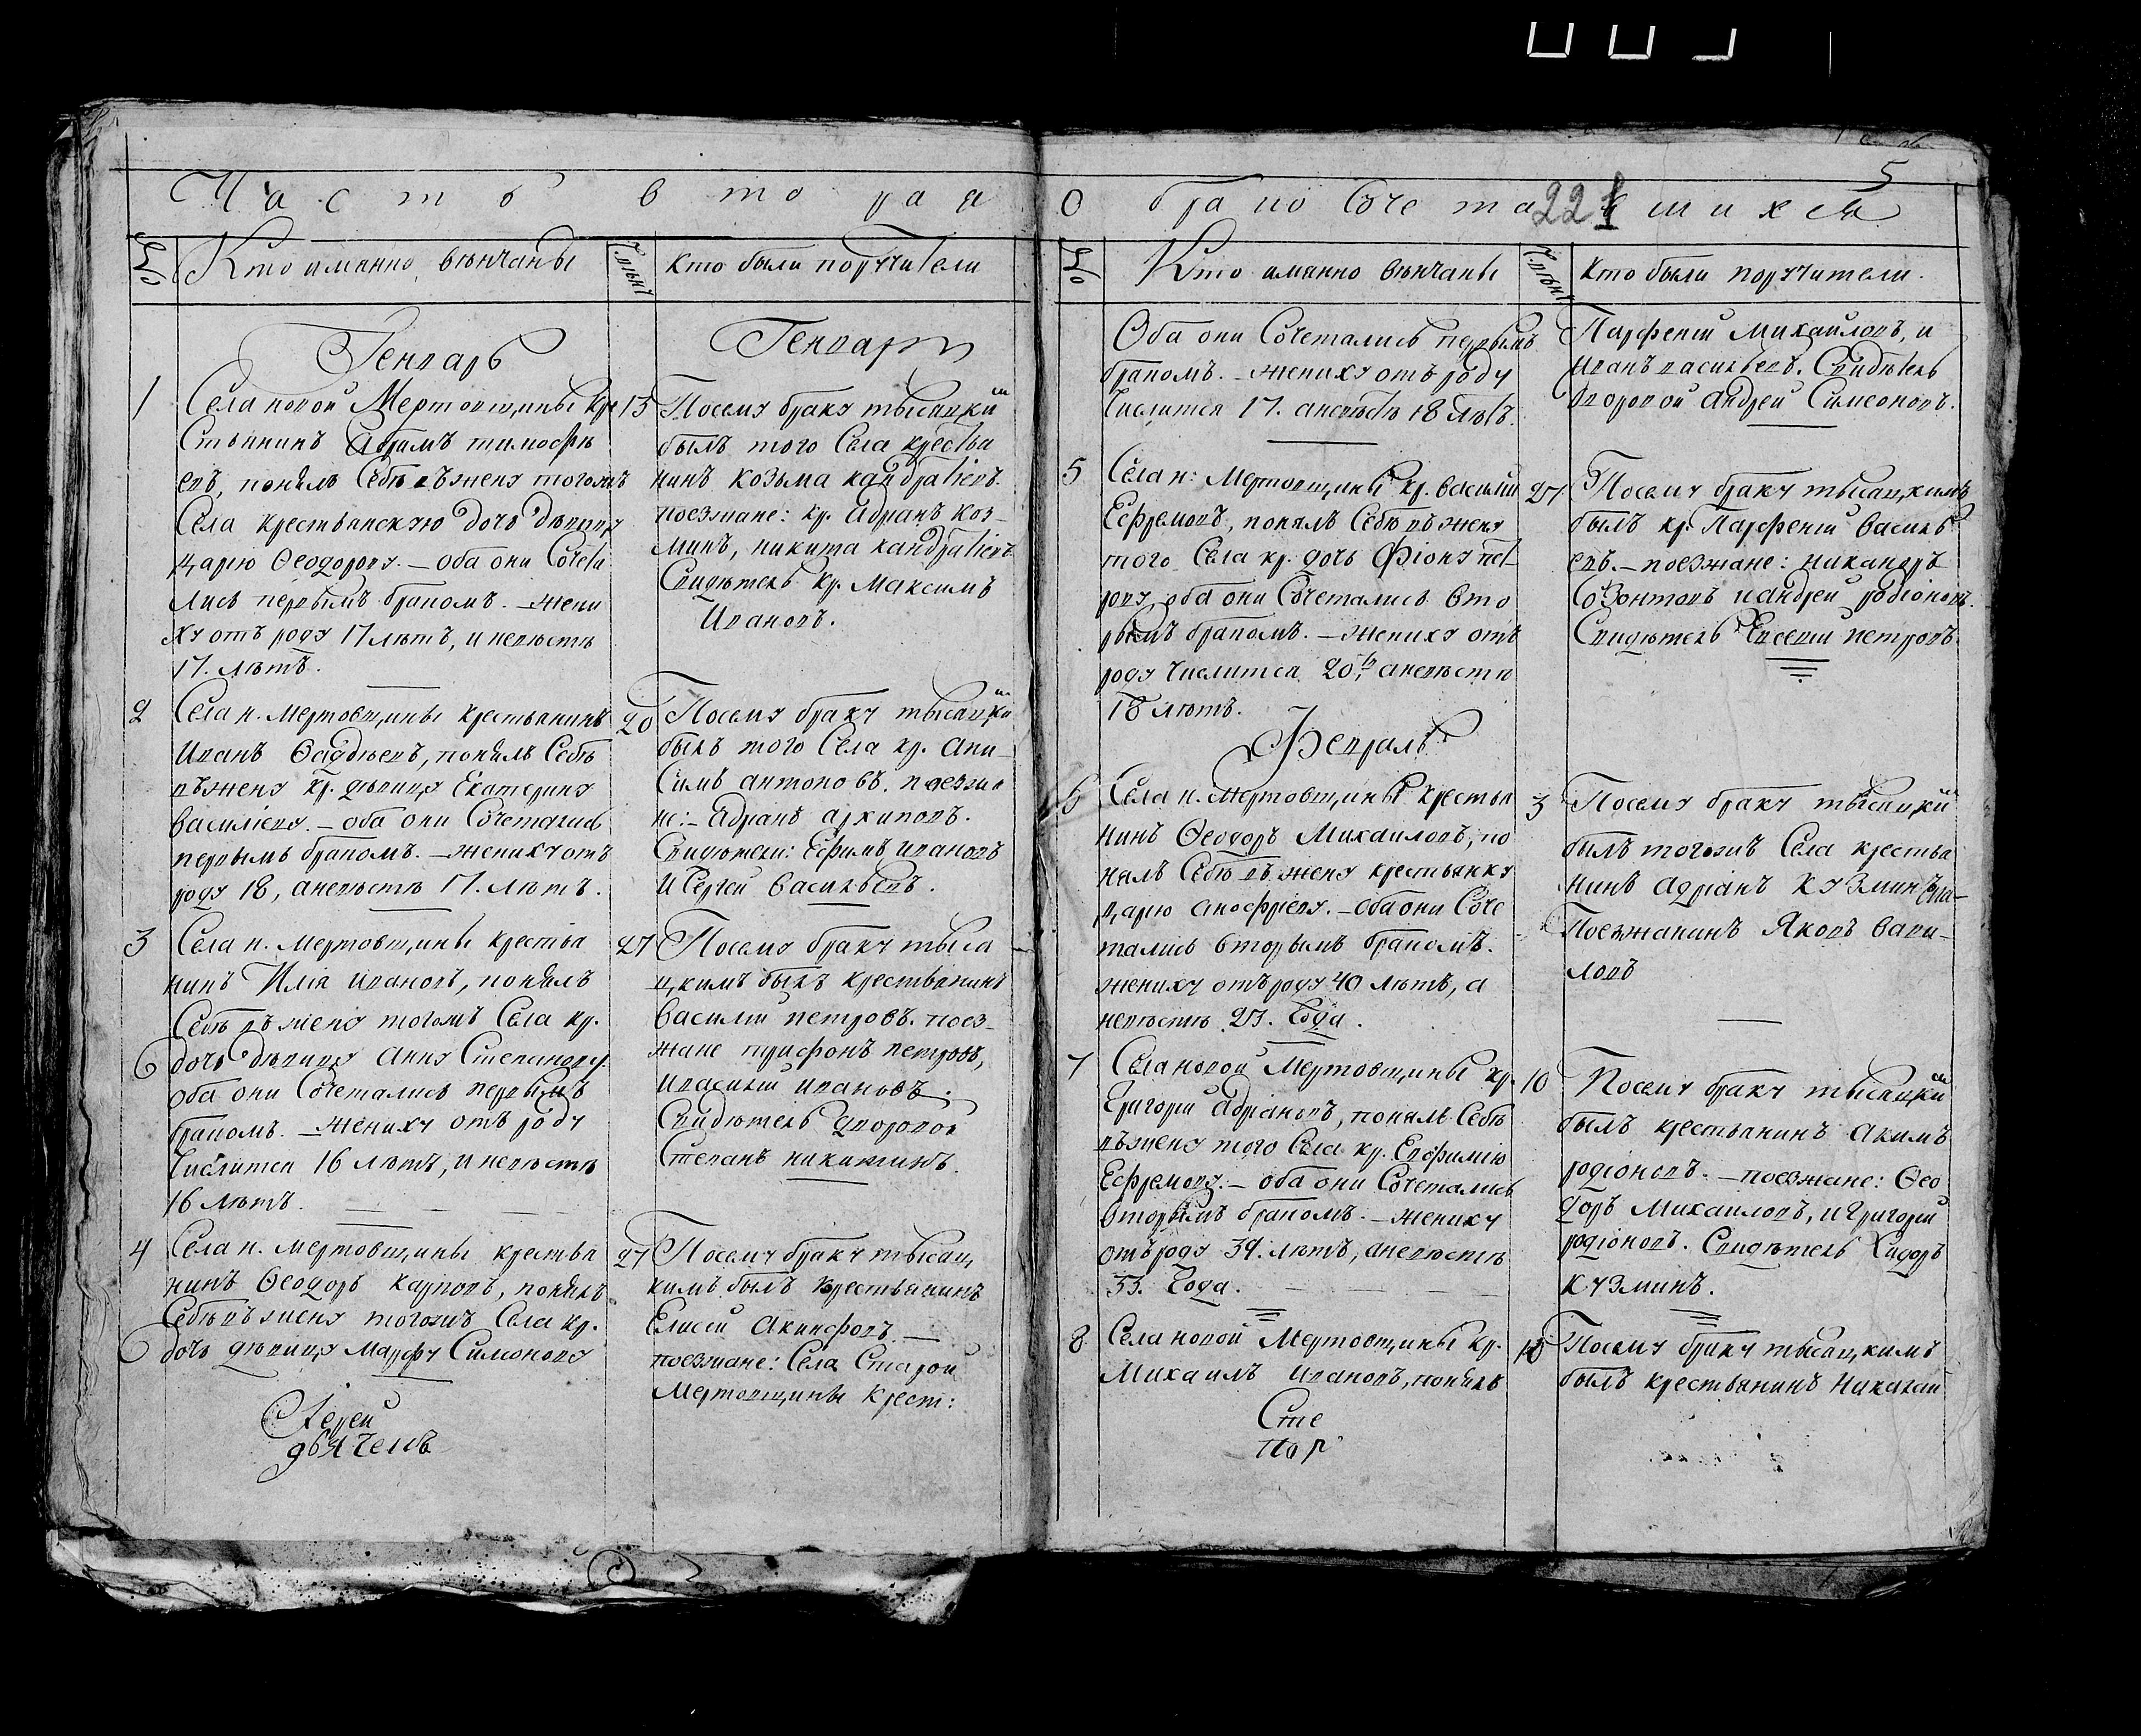 Часть вторая
№
Кто имянно вѣнчаны
Числа
Кто были поручители
Генварь
Генварь
1
Села новой Мертовщины кре
стьянинъ Абрамъ тимофѣ
евъ, понялъ себѣ въ жену тогожъ
села крестьянскую дочь дѣвицу
дарью Ѳеодорову. – оба они сочета
лись первымъ бракомъ. – жени
ху отъ роду 17 лѣтъ, и невѣстѣ
17. лѣтъ.
13
Посему браку тысяцкій
былъ того села крестья
нинъ козьма кандратіевъ.
поезжане: кр. Адранъ Коз–
минъ, никита кандратіевъ
Свидѣтель кр. Максимъ
Ивановъ.
2
Села н. мертовщины крестьянинъ
Иванъ Ѳаддѣевъ, понялъ себѣ
въ жену кр. дѣвицу Екатерину
василіеву. – оба они сочетались
первымъ бракомъ. – жениху отъ
роду 18, аневѣстѣ 17. лѣтъ.
20
Посему браку тысяцкій
былъ того села кр. Ани–
симъ антоновъ. поезжа
не: – Адранъ архиповъ.
Свидѣтели: Ефимъ ивановъ
И Сергей васильевъ.
3
Села н. мертовщины крестья
нинъ Илія ивановъ, понялъ
себѣ въ жену тогожъ села кр.
дочь дѣвицу анну Степанову.
оба они сочетались первымъ
бракомъ. – жениху отъ роду
числится 16 лѣтъ, и невѣстѣ
16 лѣтъ.
27
Посему браку тыся
цкимъ былъ крестьянинъ
василій петровъ. поез–
жане трифонъ петровъ,
ивасилій ивановъ.
Свидѣтель дворовой
Степанъ никитинъ.
4
Села н. мертовщины крестья
нинъ Ѳеодоръ карповъ, понялъ
себѣ въ жену тогожъ села кр.
дочь дѣвицу марфу Симонову
27
Посему браку тысяц
кимъ былъ крестьянинъ
Елисей Акинфовъ. –
поезжане: Села Старой
Мертовщины крест:
Іерей
дьячекъ
5
221
О бракосочетавшихся
№
Кто имянно вѣнчаны
Числа
Кто были поручители.
Оба они сочетались первымъ
бракомъ. – жениху отъ роду
числится 17. аневѣстѣ 18 лѣтъ.
Парфеній Михаиловъ, и
иванъ васильевъ. Свидѣтель
дворовой андрей Симеоновъ.
5
Села н: Мертовщины кр. василій
Ефремовъ, понялъ себѣ въ жену
того села кр. дочь Фіону пет–
рову оба они сочетались вто
рымъ бракомъ. – жениху отъ
роду числится 20ть аневѣстѣ
18 лѣтъ.
27
Посему браку тысяцкимъ
былъ кр. Парфеній василь
евъ. – поезжане: никаноръ
Созонтовъ иандрей родіоновъ.
Свидѣтель Евсевій петровъ
Февраль
6
Села н. Мертовщины крестья
нинъ Ѳеодоръ Михаиловъ, по
нялъ себѣ въ жену крестьянку
дарью анофріеву. – оба они соче
тались вторымъ бракомъ.
жениху отъ роду 40 лѣтъ, а
невѣстѣ 23. года.
3
Посему браку тысяцкій
былъ тогожъ села крестья
нинъ адріанъ кузминъ
Поезжанинъ Яковъ вави–
ловъ
7
Села новой Мертовщины кр.
Григорій адріановъ, понялъ себѣ
въ жену того села кр. Евфимію
Ефремову. – оба они сочетались
вторымъ бракомъ. – жениху
отъ роду 39. лѣтъ, аневѣстѣ
33. года.
10
Посему браку тысяцкій
былъ крестьянинъ акимъ
родіоновъ. – поезжане: Ѳео
доръ михаиловъ, и григорій
родіоновъ. Свидѣтель Сидоръ
кузминъ.
8
Села новой Мертовщины кр.
Михаилъ ивановъ, понялъ
10
Посему браку тысяцкимъ
былъ крестьянинъ Никалай
Сте
пор